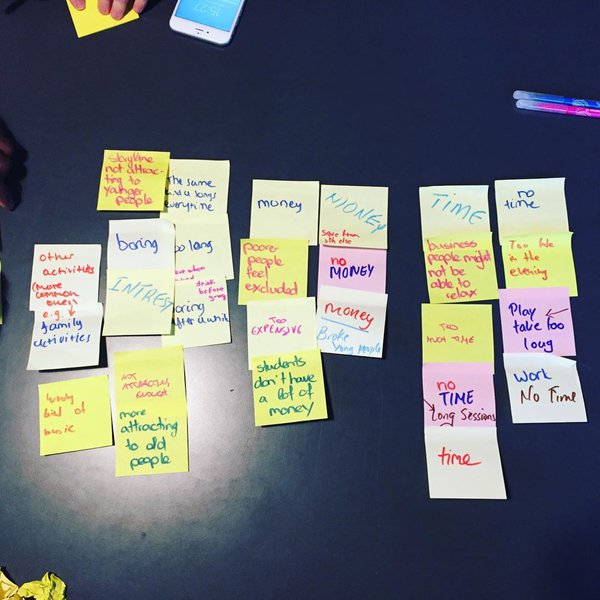 15:27
storyline
not attrac-
ting to
younger
people
The same
songs
everytime
boring
too long
INTREST
drink
before
going
boring
after a while
other
activities
(more
common
ones)
e.g.
family
activities
kind of
music
NOT
ATTRACTING
ENOUGH
more
attracting
to old
people
money
MONEY
save from
sth else
poorer
people
feel
excluded
no
MONEY
TOO
EXPENSIVE
money
Broke
yong people
students
don't have
a lot of
money
TIME
no
time
business
people might
not be
able to
relax
Too late
in the
evening
TOO
MUCH TIME
Play
take too
long
no
TIME
Long Sessions
work
No Time
time